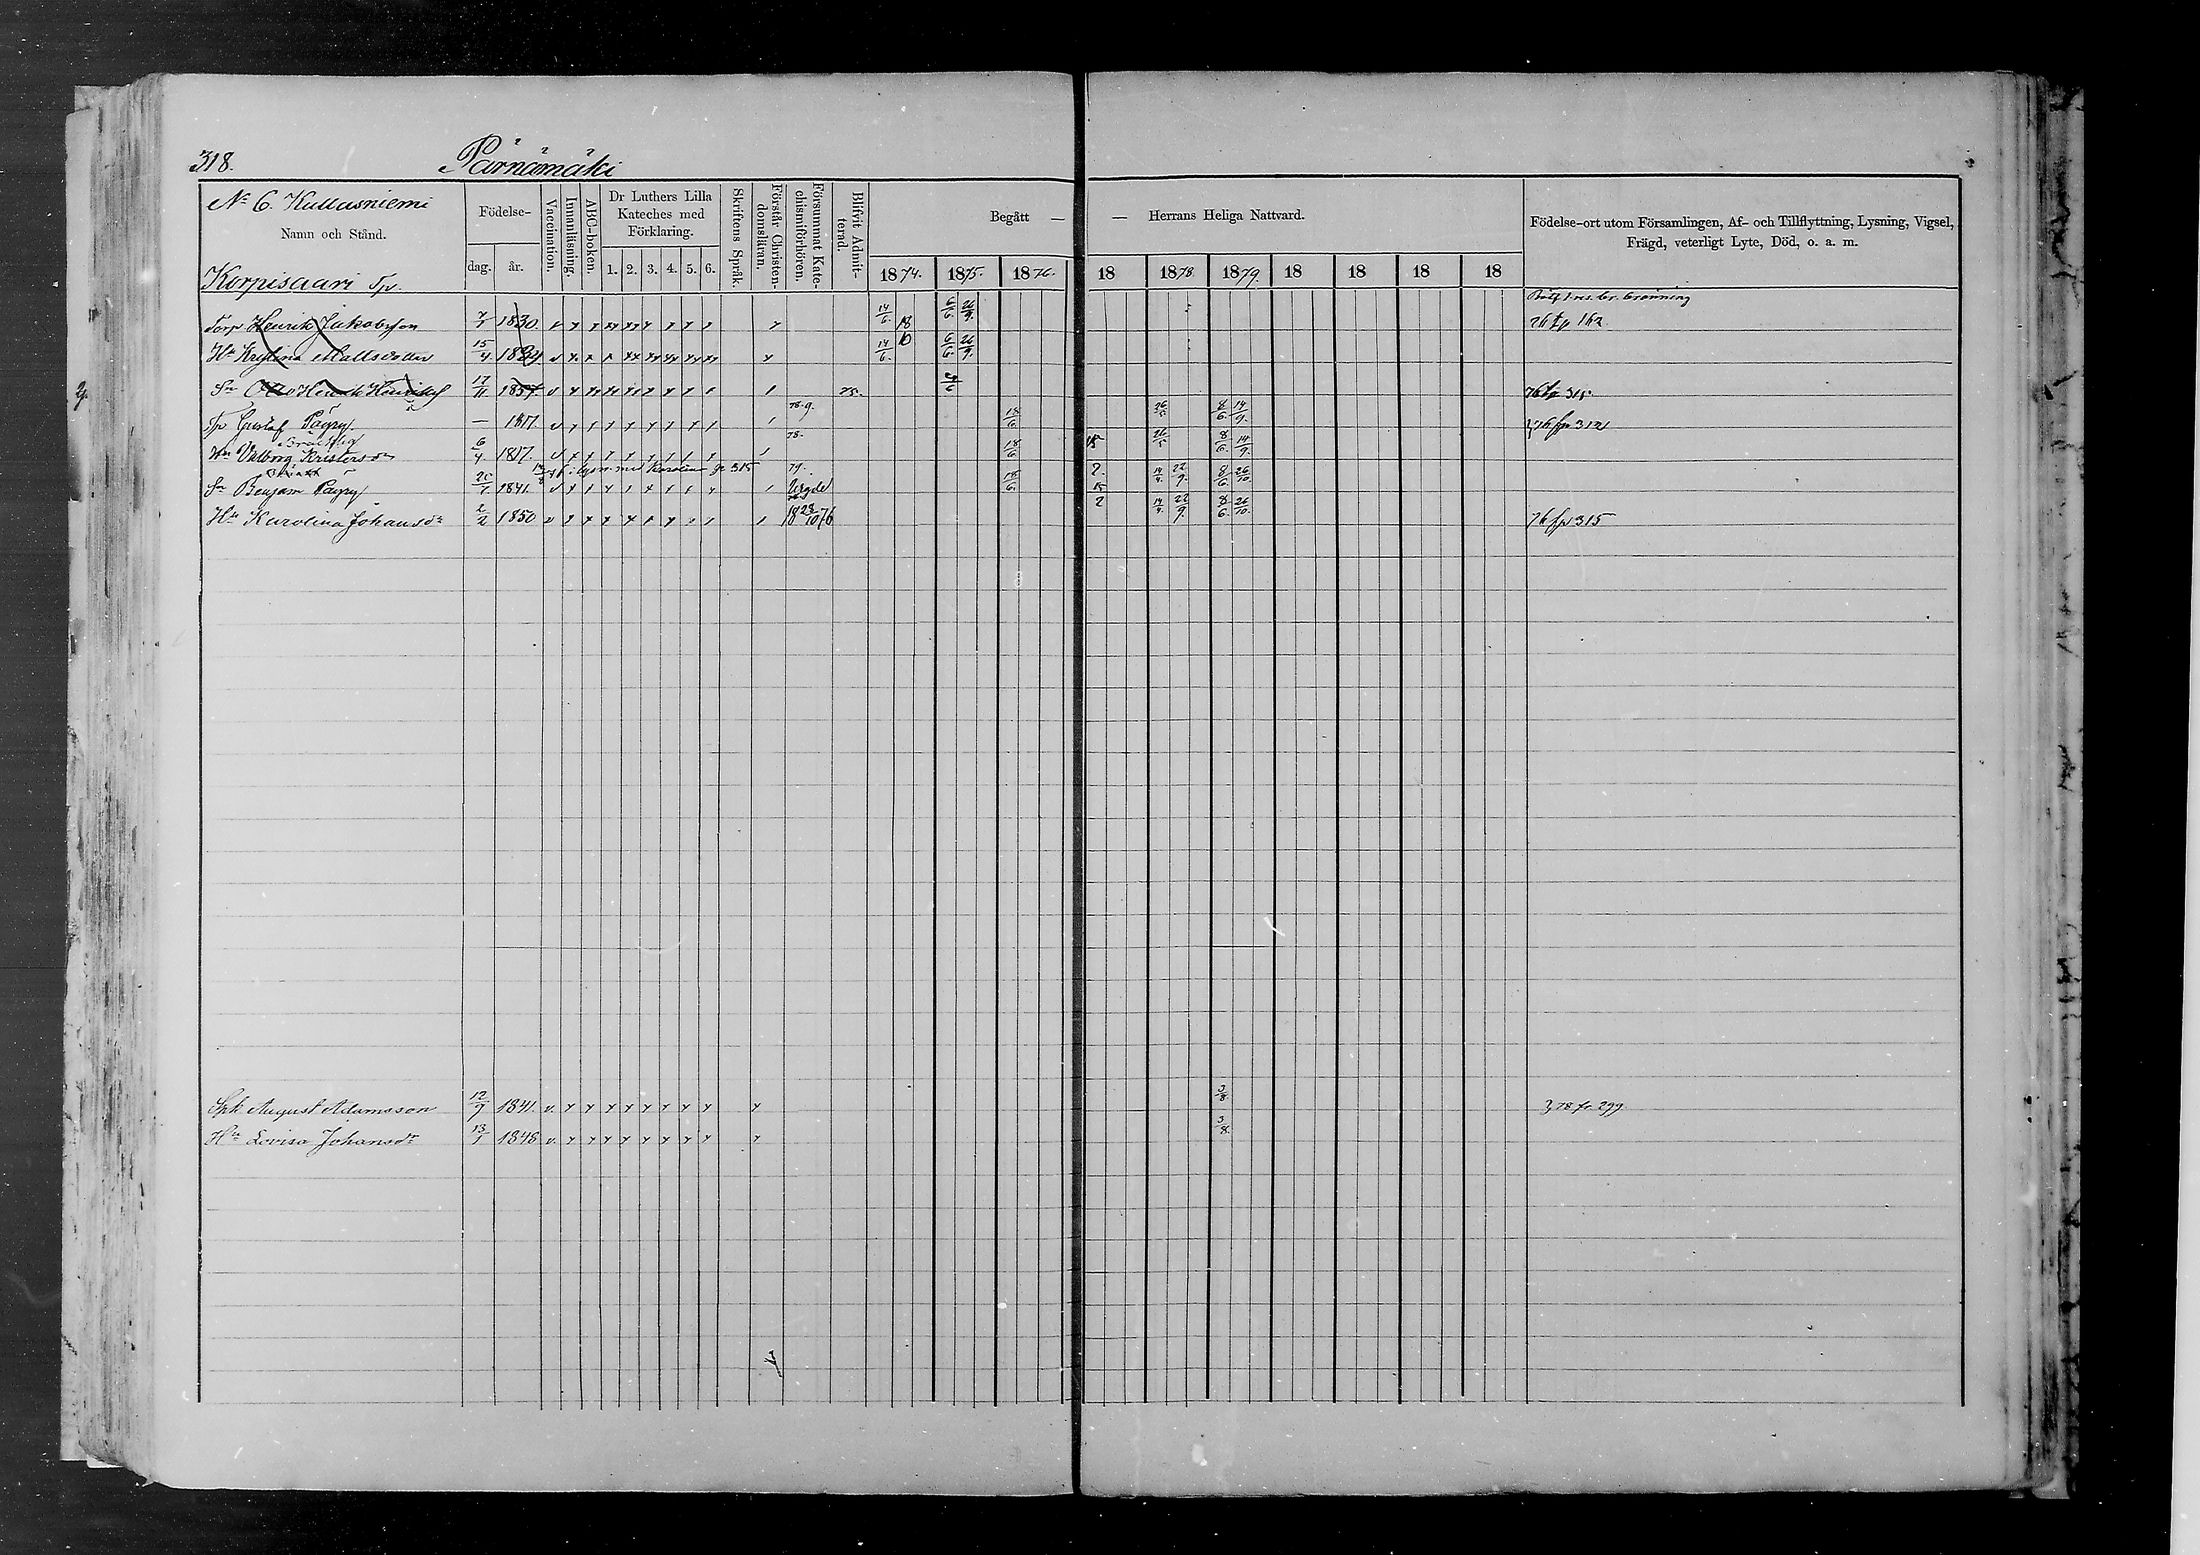 318.
Pärnämäki
No 6. Kullasniemi
Namn och Stånd.
Födelse-
dag. år.
Vaccination.
Innanläsning.
ABC-boken.
Dr Luthers Lilla
Kateches med
Förklaring.
1. 2. 3. 4. 5. 6.
Skriftens Språk.
Förstår Christen-
domsläran.
Försummat Kate-
chismiförhören.
Blifvit Admit-
terad.
Begått —
— Herrans Heliga Nattvard.
1874. 1875. 1876. 18 1878. 1879. 18 18 18 18
Födelse-ort utom Församlingen, Af- och Tillflyttning, Lysning, Vigsel,
Frägd, veterligt Lyte, Död, o. a. m.
Korpisaari Tp.
Torp Henrik Jakobsson 7/1 1830. 14/6. 18 6/6. 26/9. 76 fp 162
Hu Kristina Mattsdotter 15/4 1834 14/6. 10 6/6. 26/9.
Sn Otto Henrik 17/11 1857. 75. 76 fp 315
Tp Gustaf Pärpy — 1817. 78-9. 18/6 26/5 8/6. 14/9. 76 fr 312
Hu Valborg Kristersdr 6/4 1817. 78- 18/6 15 26/5 8/6. 14/9.
lysn. med Karolina fr 315
Sn Benjam Pärpy 20/1 1841. 79. Vigde 18/6. 2. 15 14/4. 22/9. 8/6. 26/10.
Hu Karolina Johansdr 2/2 1850 18 28/10 76 2 14/4. 22/9. 8/6. 26/10. 76 fr 315
Spk August Adamsson 12/9 1841. v. 3/8 78 fr. 299.
Hu Lovisa Johansdr 13/1 1848 v. 3/8.